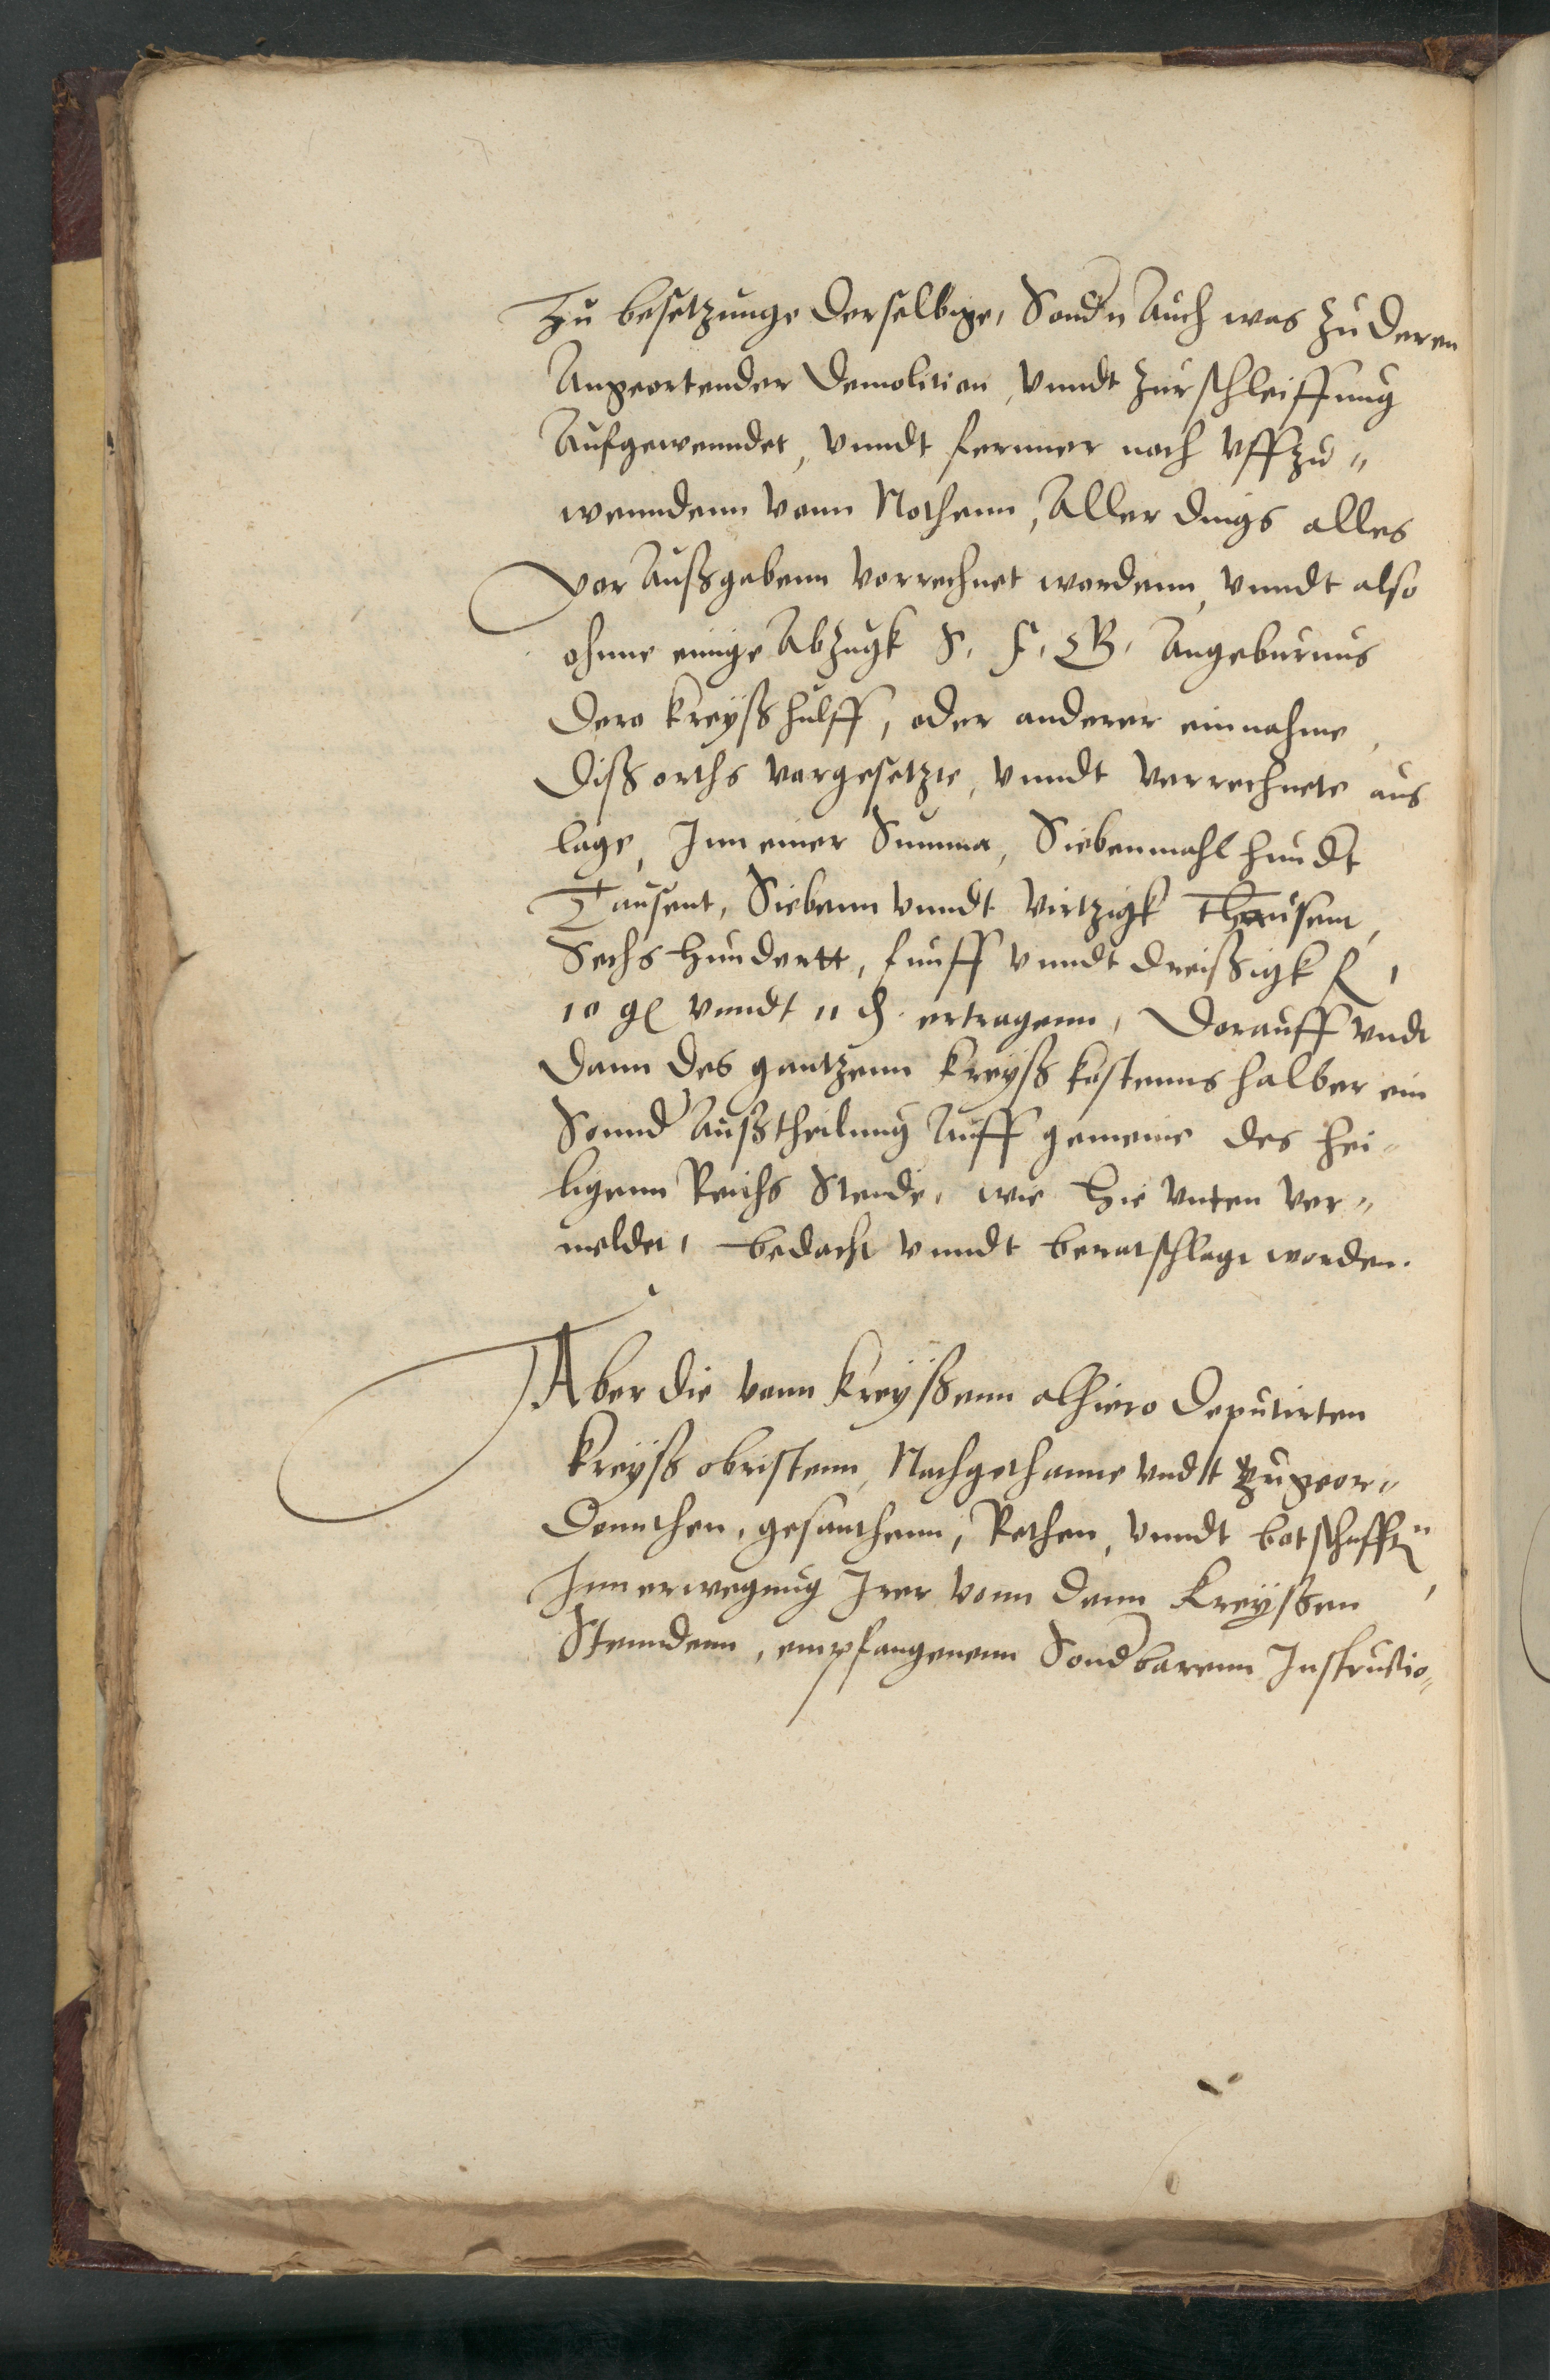 Zu besetzunge derselbige, Sondn Auch was zu deren
Angeortender Demolition, vnndt zurschleiffung
Aufgewenndet, vnndt fernner noch vffzu„
wenndenn vonn Nothenn, Aller dings alles
vor Außgabenn vorrechnet wordenn, vnndt also
ohnne einige Abzugk S. F. G. Angeburnus
Dero Kreyßhulff, oder anderer einnahme,
Dißorths vorgesetzte, vnndt verrechnete aus
lage, Inn einer Summa, Siebenmahl hundt
Tausent, Siebenn vnndt virtzigk thausent,
Sechs hundertt, funff vnndt dreissigk fl,
10 gl vnndt 11 d. ertragenn, Dorauff vndt
Dann des gantzenn Kreyß kostenns halber ein
Sonnd Außtheilung Auff gemeine des hei„
ligenn Reichs Stende, wie hie vnten ver„
meldet, bedacht vnndt beratschlagt worden.
Aber die vonn Kreyßenn alhiero Deputirten
Kreyß obristenn, Nachgethanne vndt zugeor„
Dennthen, gesanthenn, Rethen, vnndt botschafft
Inn erwegung Irer vonn denn Kreyßen
Stenndenn, empfangenenn Sondbarenn Instructio„